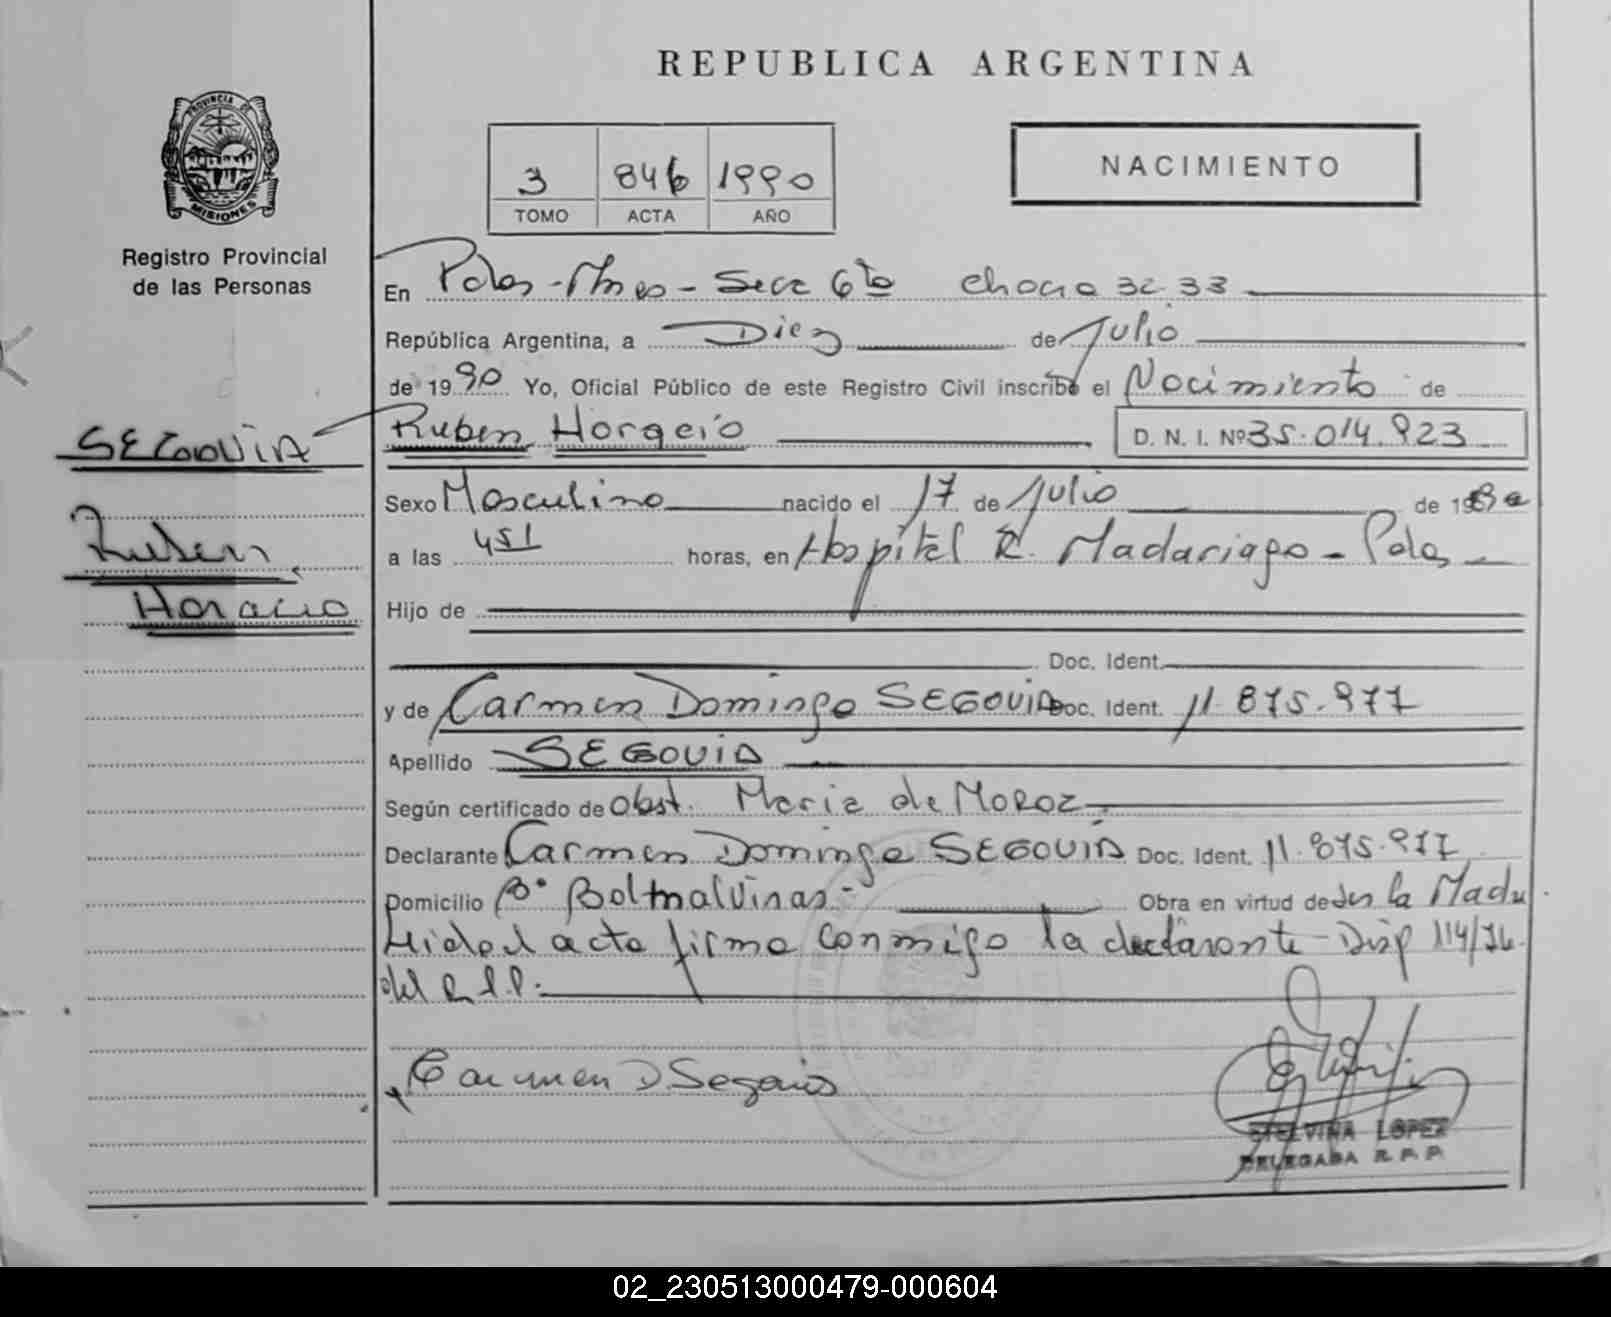 REPUBLICA ARGENTINA
PROVINCIA DE
MISIONES
Registro Provincial
de las Personas
3 846 1990
TOMO ACTA AÑO
NACIMIENTO
En Pdas - Mnes - Secc 6ta chacra 32.33
República Argentina, a Diez de Julio
de 1990 Yo, Oficial Público de este Registro Civil inscribo el Nacimiento de
SEGOVIA
Ruben Horacio D. N. I. Nº 35.014.923
Sexo Masculino nacido el 17 de Julio de 19
Ruben
a las 451 horas, en Hospital R. Madariaga - Pdas
Horacio
Hijo de
Doc. Ident.
y de Carmen Dominga SEGOVIA Doc. Ident. 11.875.977
Apellido SEGOVIA
Según certificado de Obst. Maria de MOROZ
Declarante Carmen Dominga SEGOVIA Doc. Ident. 11.875.977
Domicilio Bº Bel Malvinas - Obra en virtud de ser la Madre
Leida el acta firma conmigo la declarante - Disp 114/76
del R.P.P.
Carmen D Segovia
ETELVINA LOPEZ
DELEGADA R.P.P
02_230513000479-000604